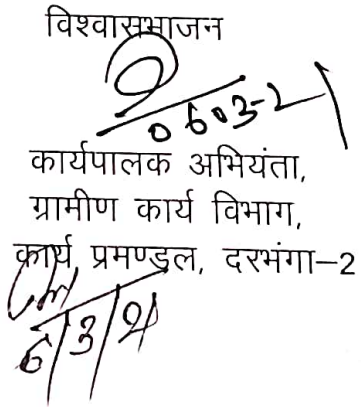 विश्वासभाजन
0603-21
कार्यपालक अभियंता,
ग्रामीण कार्य विभाग,
कार्य प्रमण्डल, दरभंगा–2
6/3/21